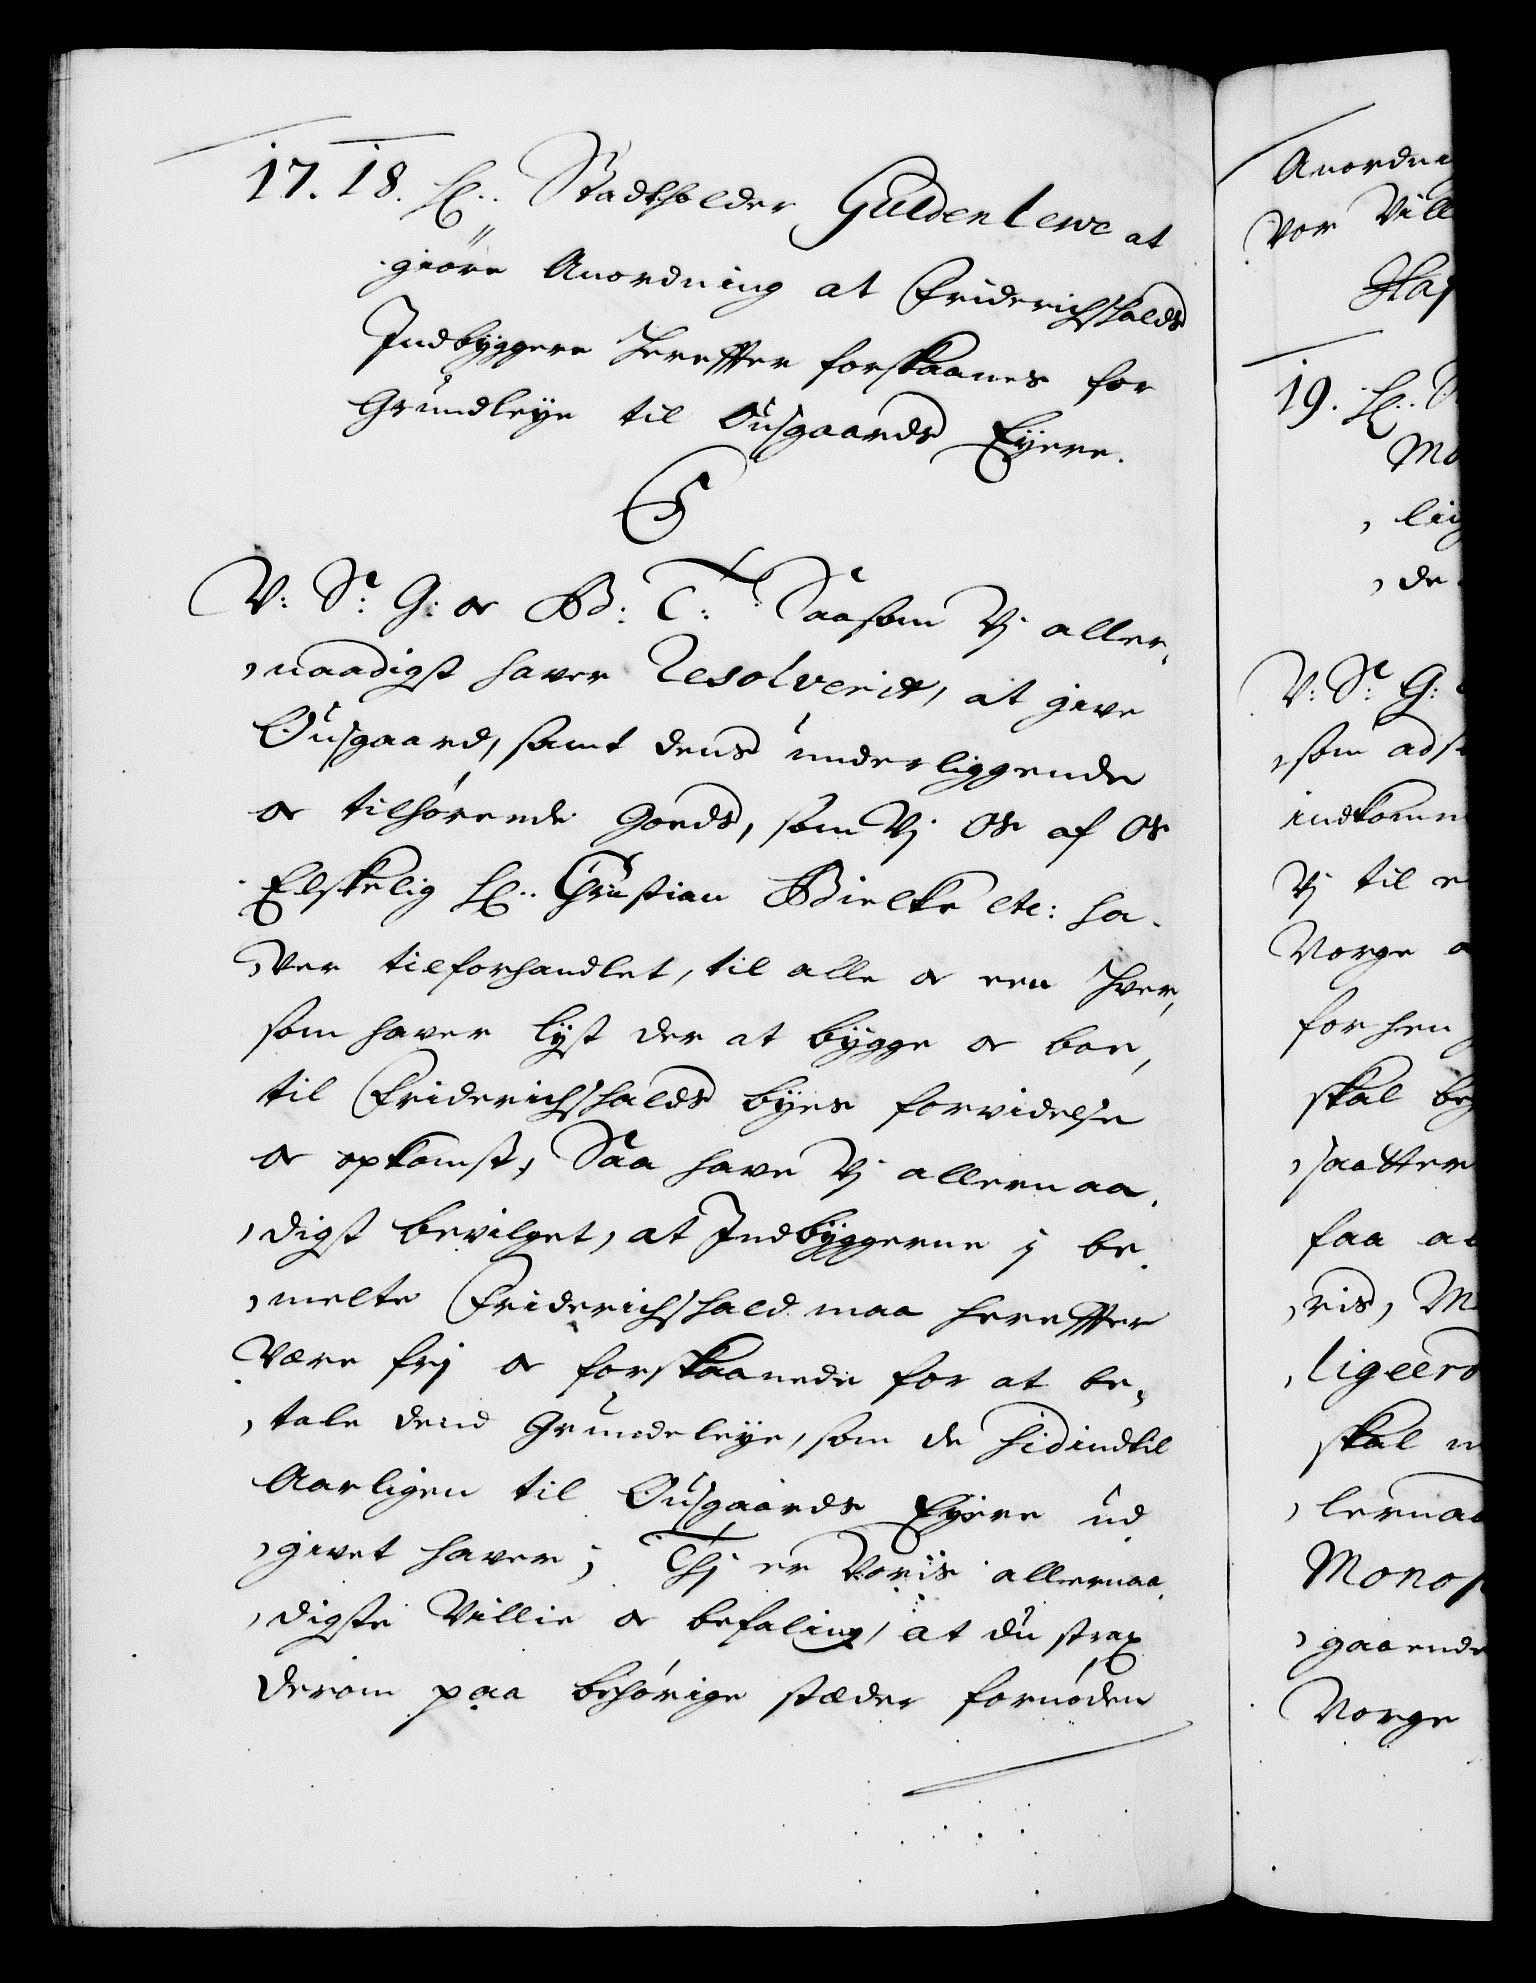 17. 18. H: Stadtholder Güldenlewe at
giöre Anordning at Friderichshalds
Indbyggere hereffter forskaanes for
Grundleye til Ousgaards Eyere.
C5
V: S: G: oc Bd: T: Saasom Vj aller-
naadigst haver Resolverit, at give
Ousgaard, samt dens underliggende
oc tilhörende Goeds, som Vj Os af Os
Elskelig H: Christian Bielke etc: ha-
ver tilforhandlet, til alle oc een hver,
som haver lyst der at bygge oc boe,
til Friderichshalds byes forvidelse
oc opkomst, Saa have Vj allernaa-
digst bevilget, at Indbyggerne j be-
melte Friderichshald maa hereffter
være frj oc forskaanede for at be-
tale dend Grundeleye, som de hidindtil
Aarligen til Ousgaards Eyere ud
givet haver; Thj er Voris allernaa-
digste Villie oc befaling, at du strax
derom paa behörige stæder fornöden
Anordni
Vor Vill
Haf
19. H:
Mo
lig
de
V: S: G:
som adsk
indkomm
Vj til e
Norge
forhen
skal be
saatter
faa at
ris, M
ligeero
skal
lernaa
Monop
gaaende
Norge